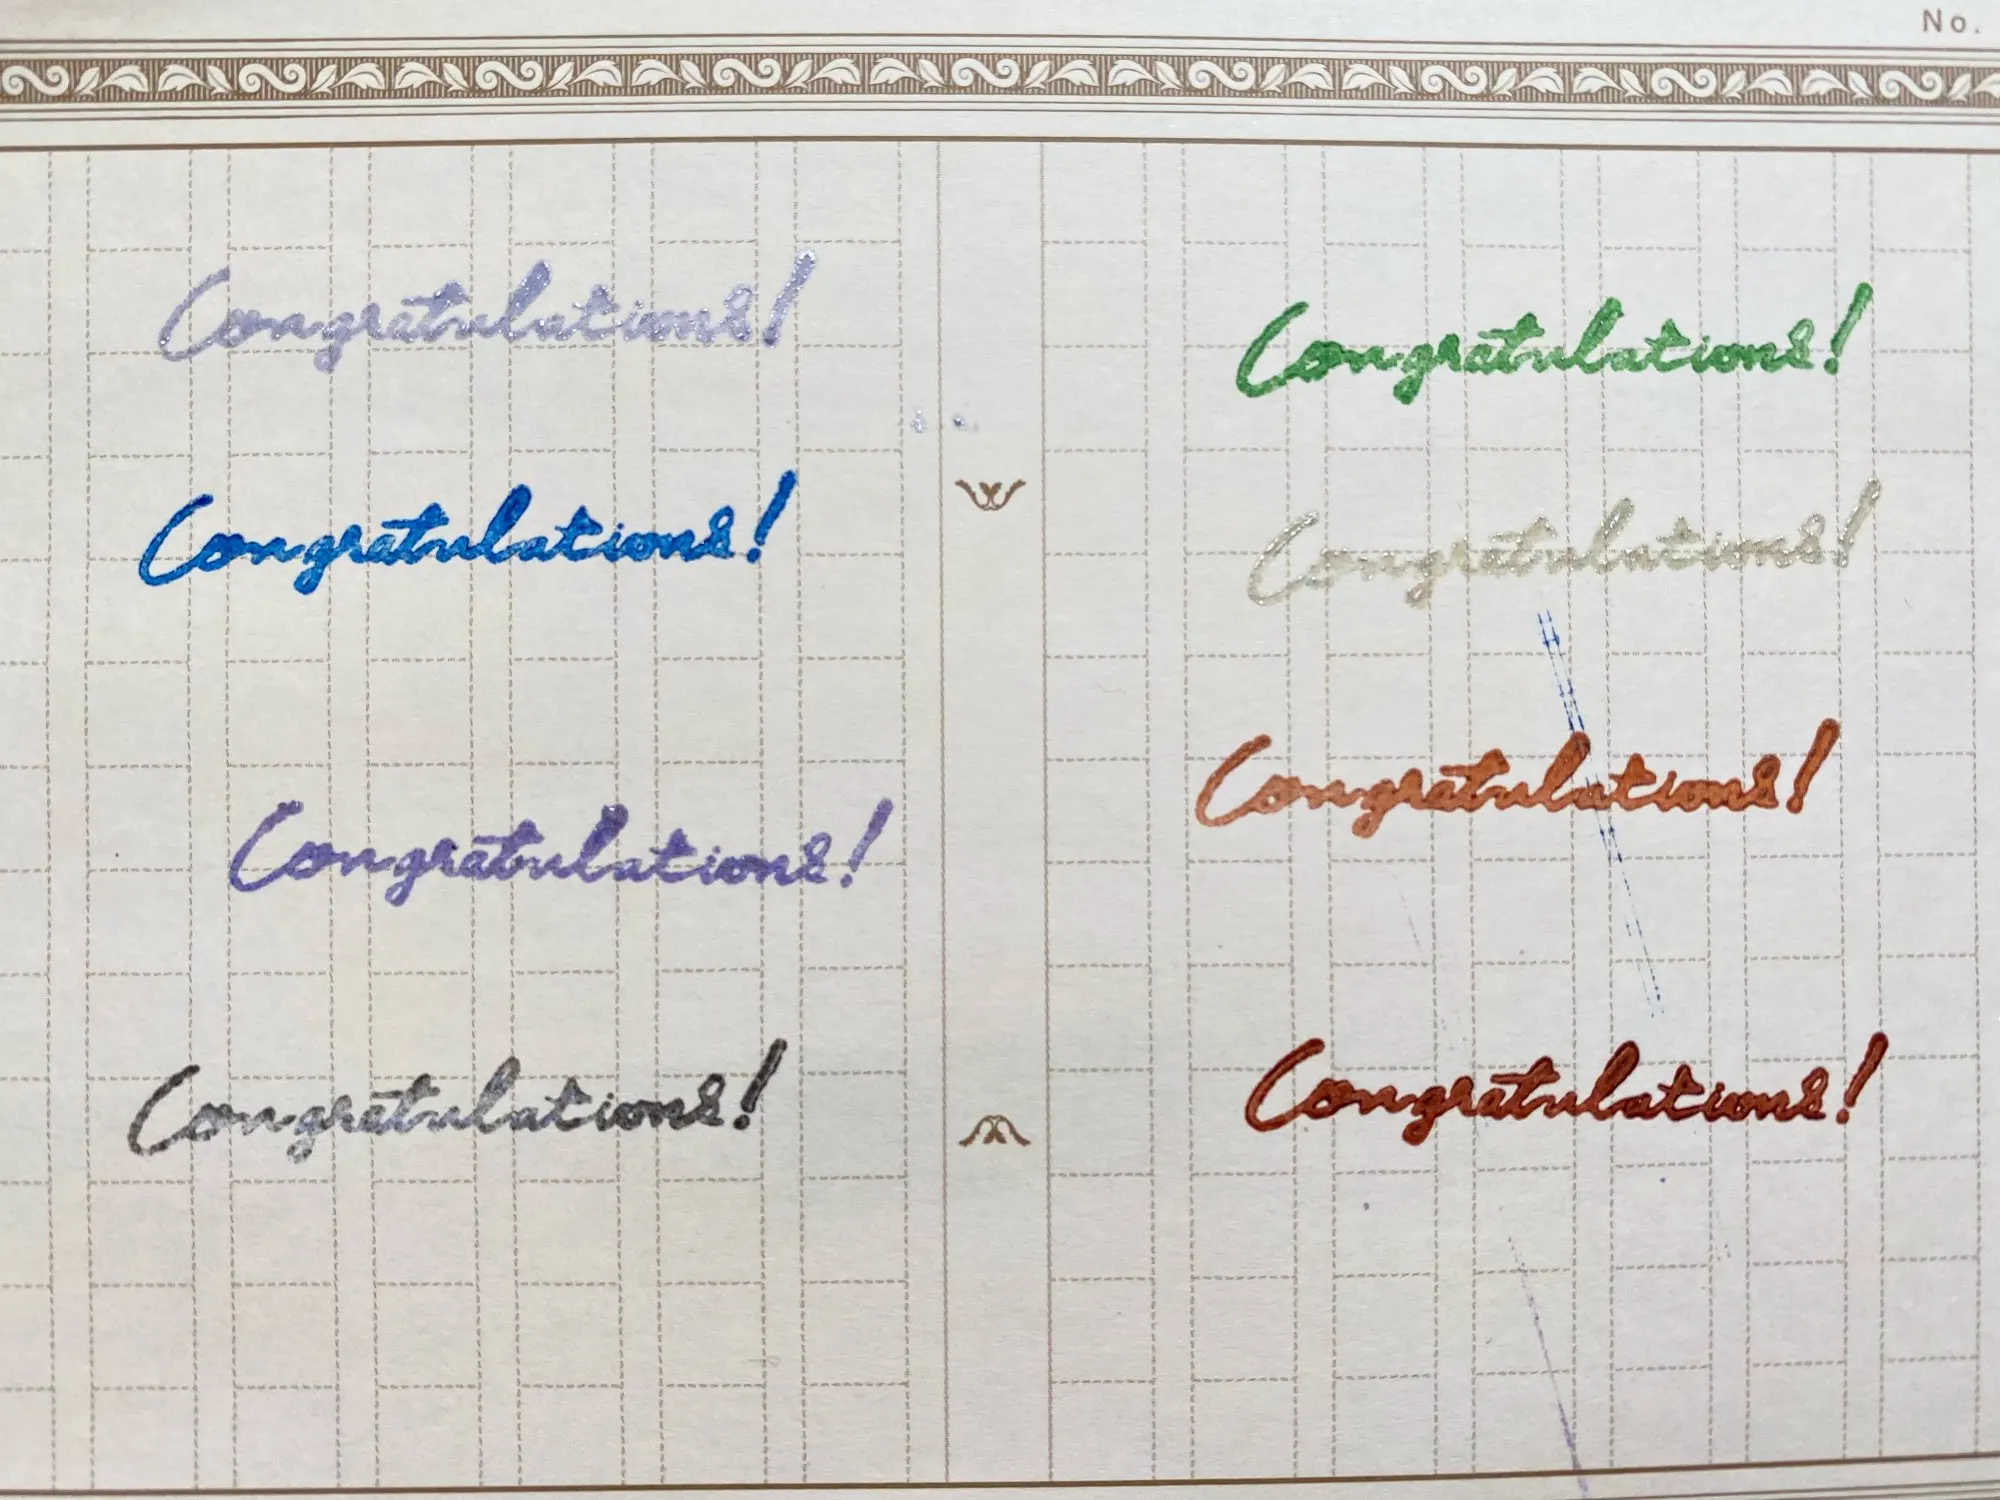 No.
Congratulations!
Congratulations!
Congratulations!
Congratulations!
Congratulations!
Congratulations!
Congratulations!
Congratulations!